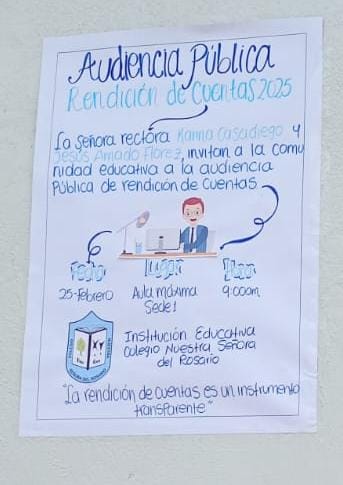 Audiencia Pública
Rendición de Cuentas 2025
La Señora rectora Karina Casadiego y
Jesús Amado Florez, invitan a la comu
nidad educativa a la audiencia
Pública de rendición de cuentas
Fecha
Lugar
Hora
25-Febrero
Aula máxima
Sede 1
9:00am
Institución Educativa
Colegio Nuestra Señora
del Rosario
"La rendición de cuentas es un instrumento
transparente"